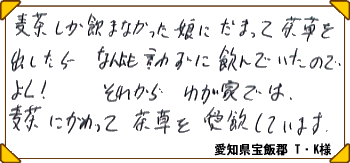 麦茶しか飲まなかった娘にだまって茶草を
出したら なんにも言わずに飲んでいたので
よし! それから わが家では、
麦茶にかわって茶草を愛飲しています.
愛知県宝飯郡 T・K様